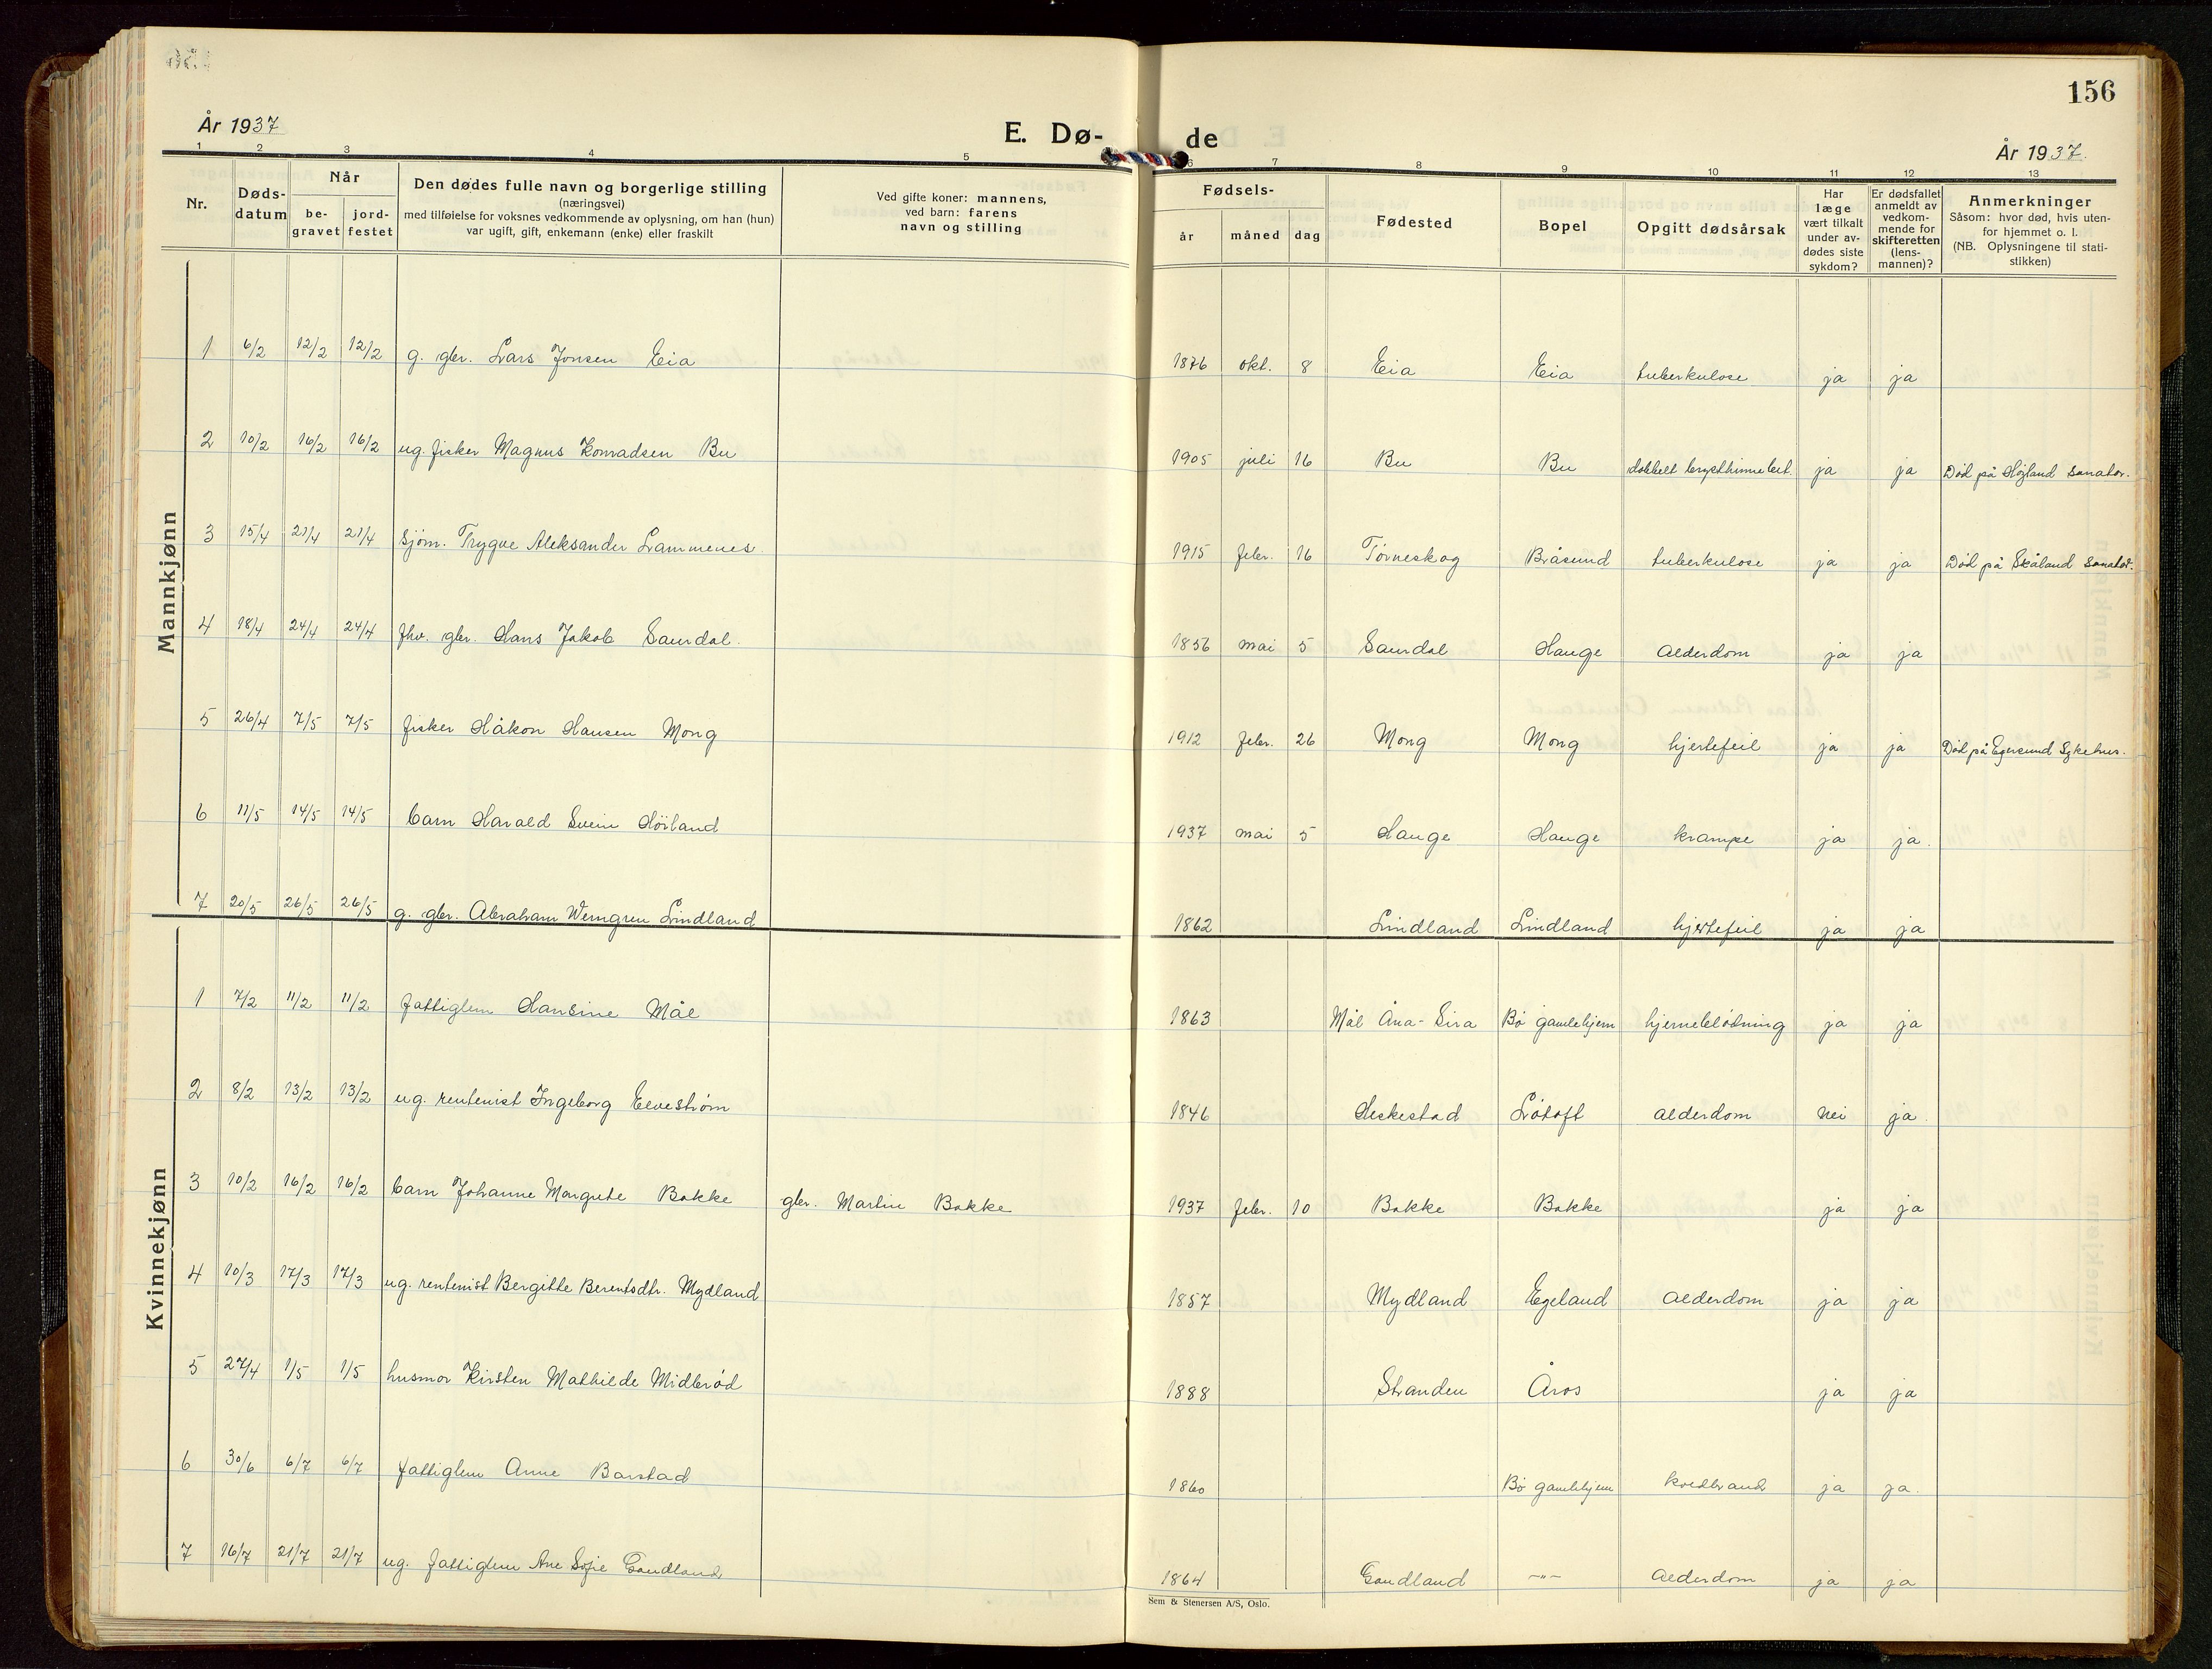 156
År 1937
E. Dø-
de
År 1937.
1 2 3 4 5 6 7 8 9 10 11 12 13
Nr.
Døds-
datum
Når
be-
gravet
jord-
festet
Den dødes fulle navn og borgerlige stilling
(næringsvei)
med tilføielse for voksnes vedkommende av oplysning, om han (hun)
var ugift, gift, enkemann (enke) eller fraskilt
Ved gifte koner: mannens,
ved barn: farens
navn og stilling
Fødsels-
år
måned
dag
Fødested
Bopel
Opgitt dødsårsak
Har
læge
vært tilkalt
under av-
dødes siste
sykdom?
Er dødsfallet
anmeldt av
vedkom-
mende for
skifteretten
(lens-
mannen)?
Anmerkninger
Såsom: hvor død, hvis uten-
for hjemmet o. l.
(NB. Oplysningene til stati-
stikken)
Mannkjønn
1 6/2 12/2 12/2 g. gbr. Lars Jonsen Eia 1876 okt. 8 Eia Eia tuberkulose ja ja
2 10/2 16/2 16/2 ug. fisker Magnus Konradsen Bu 1905 juli 16 Bu Bu dobbelt brysthinnebet. ja ja Død på Högland sanator.
3 15/4 21/4 21/4 Sjøm. Trygve Aleksander Lammenes. 1915 febr. 16 Tørneskog Bråsund tuberkulose ja ja Död på Skåland sanator.
4 18/4 24/4 24/4 fhv. gbr. Hans Jakob Saurdal. 1856 mai 5 Saurdal Hauge alderdom ja ja
5 26/4 7/5 7/5 fisker Håkon Hansen Mong 1912 febr. 26 Mong Mong hjertefeil ja ja Död på Egersund Sykehus.
6 11/5 14/5 14/5 barn Harald Svein Höiland 1937 mai 5 Hauge Hauge krampe ja ja.
7 20/5 26/5 26/5 g. gbr. Abraham Werngren Lindland 1862 Lindland Lindland hjertefeil ja ja
Kvinnekjønn
1 7/2 11/2 11/2 fattiglem Hansine Mål 1863 Mål Åna-Sira Bö gamlehjem hjerneblödning ja ja
2 8/2 13/2 13/2 ug. rentenist Ingeborg Elvestrøm 1846 Heskestad Lötoft alderdom nei ja.
3 10/2 16/2 16/2 barn Johanne Margrete Bakke gbr. Martin Bakke 1937 febr. 10 Bakke Bakke ja ja
4 10/3 17/3 17/3 ug. rentenist Bergitte Berentsdtr. Mydland 1857 Mydland Egeland alderdom ja ja
5 27/4 1/5 1/5 husmor Kirsten Mathilde Midbröd 1888 Stranden Åros ja ja
6 30/6 6/7 6/7 fattiglem Anne Barstad 1860 Bö gamlehjem koldbrand ja ja.
7 16/7 21/7 21/7 ug. fattiglem Ane Sofie Gaudland 1864 Gaudland —„— alderdom ja ja
Sem & Stenersen A/S, Oslo.